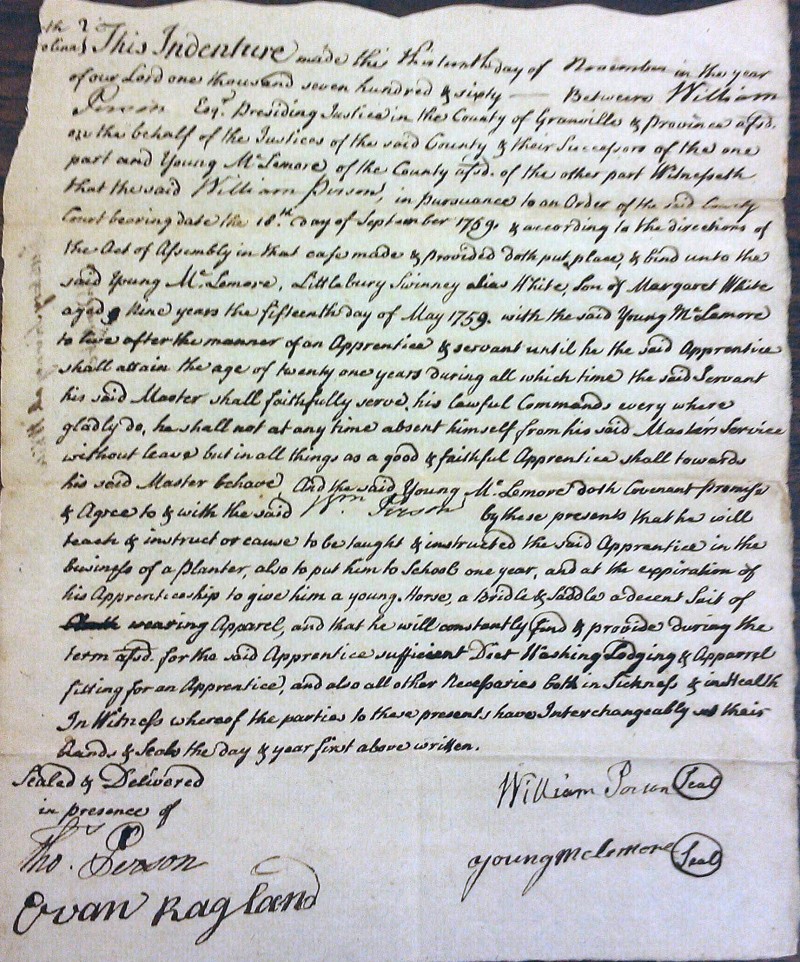 th
olina } This Indenture made this thirteenth day of November in the year
of our Lord one thousand seven hundred & sixty — Between William
Person Esqr. Presiding Justice in the County of Granville & Province afsd.
on the behalf of the Justices of the said County & their Successors of the one
part and Young McLemore of the County afsd. of the other part Witnesseth
that the said William Person, in pursuance to an Order of the said County
Court bearing date the 18th. day of September 1759. & according to the directions of
the Act of Assembly in that case made & provided doth put, place, & bind unto the
said Young McLemore, Littlebury Swinney alias White, Son of Margaret White
aged Nine years the fifteenth day of May 1759. with the said Young McLemore
to live after the manner of an Apprentice & servant until he the said Apprentice
shall attain the age of twenty one years during all which time the said Servant
his said Master shall faithfully serve, his lawful Commands every where
gladly do, he shall not at any time absent himself from his said Masters Service
without leave but in all things as a good & faithful Apprentice shall towards
his said Master behave, And the said Young McLemore doth Covenant Promise
& Agree to & with the said Wm. Person by these presents that he will
teach & instruct or cause to be taught & instructed the said Apprentice in the
business of a Planter, also to put him to School one year, and at the expiration of
his Apprenticeship to give him a young Horse, a Bridle & Saddle a decent Suit of
wearing Apparel, and that he will constantly find & provide during the
term afsd. for the said Apprentice sufficient Diet Washing Lodging & Apparrel
fitting for an Apprentice, and also all other Necessaries both in Sickness & in Health
In Witness whereof the parties to these presents have Interchangeably set their
hands & Seals the day & year first above written.
Sealed & Delivered
in presence of
William Person Seal
Tho. Person
Young McLemore Seal
Evan Ragland